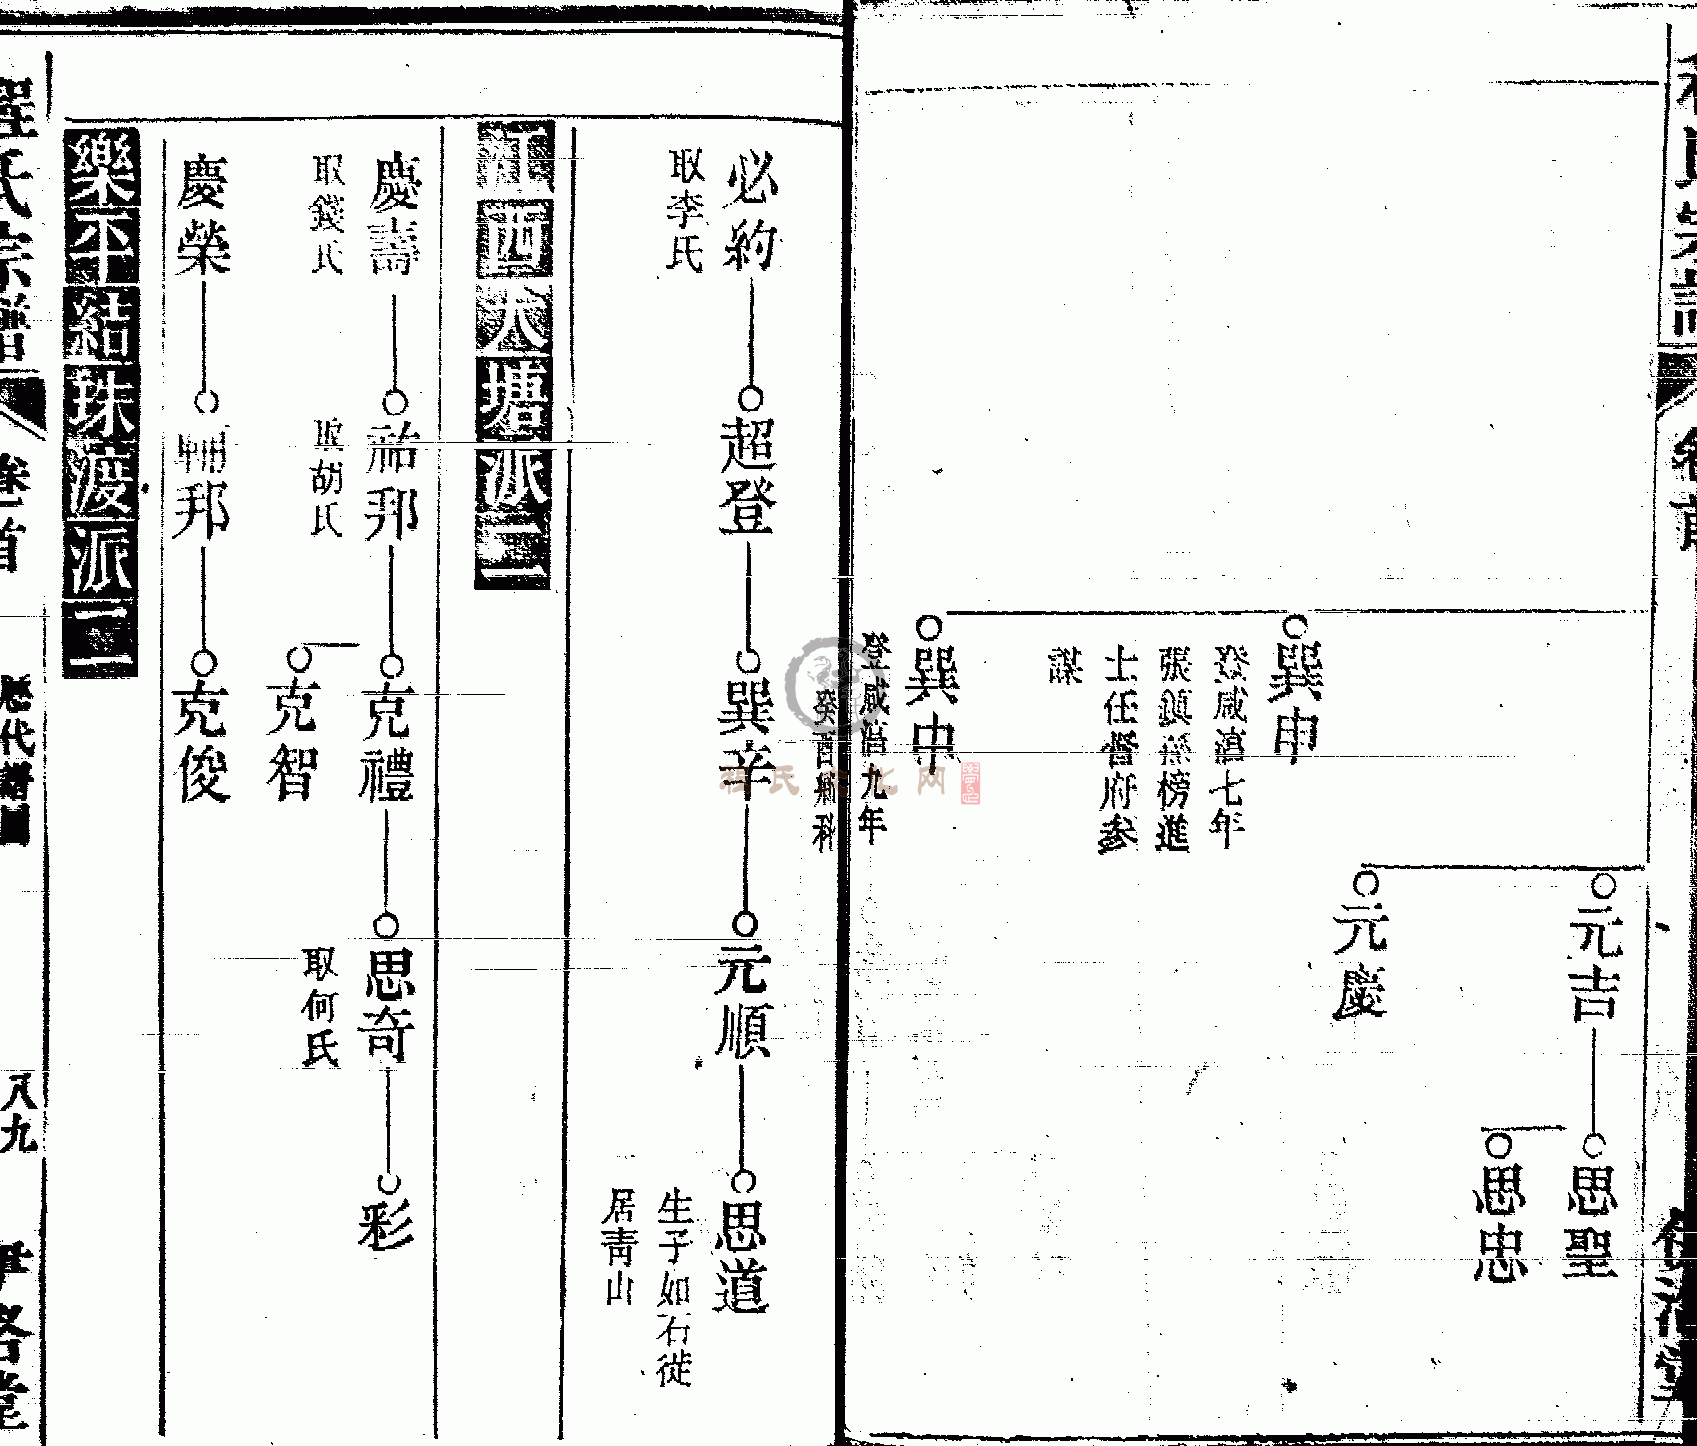 元吉
思聖
思忠
元慶
巽申
登咸湻七年
張鎮孫榜進
士任督府參
謀
巽中
登咸湻九年
癸酉鄉科
必約
取李氏
超登
巽辛
元順
思道
生子如石徙
居青山
江西大塘派二
慶壽
取錢氏
祐邦
取胡氏
克禮
思奇
取何氏
彩
克智
慶榮
輔邦
克俊
樂平結珠渡派二
程氏宗譜
卷首
歷代譜圖
八九
程氏文化网